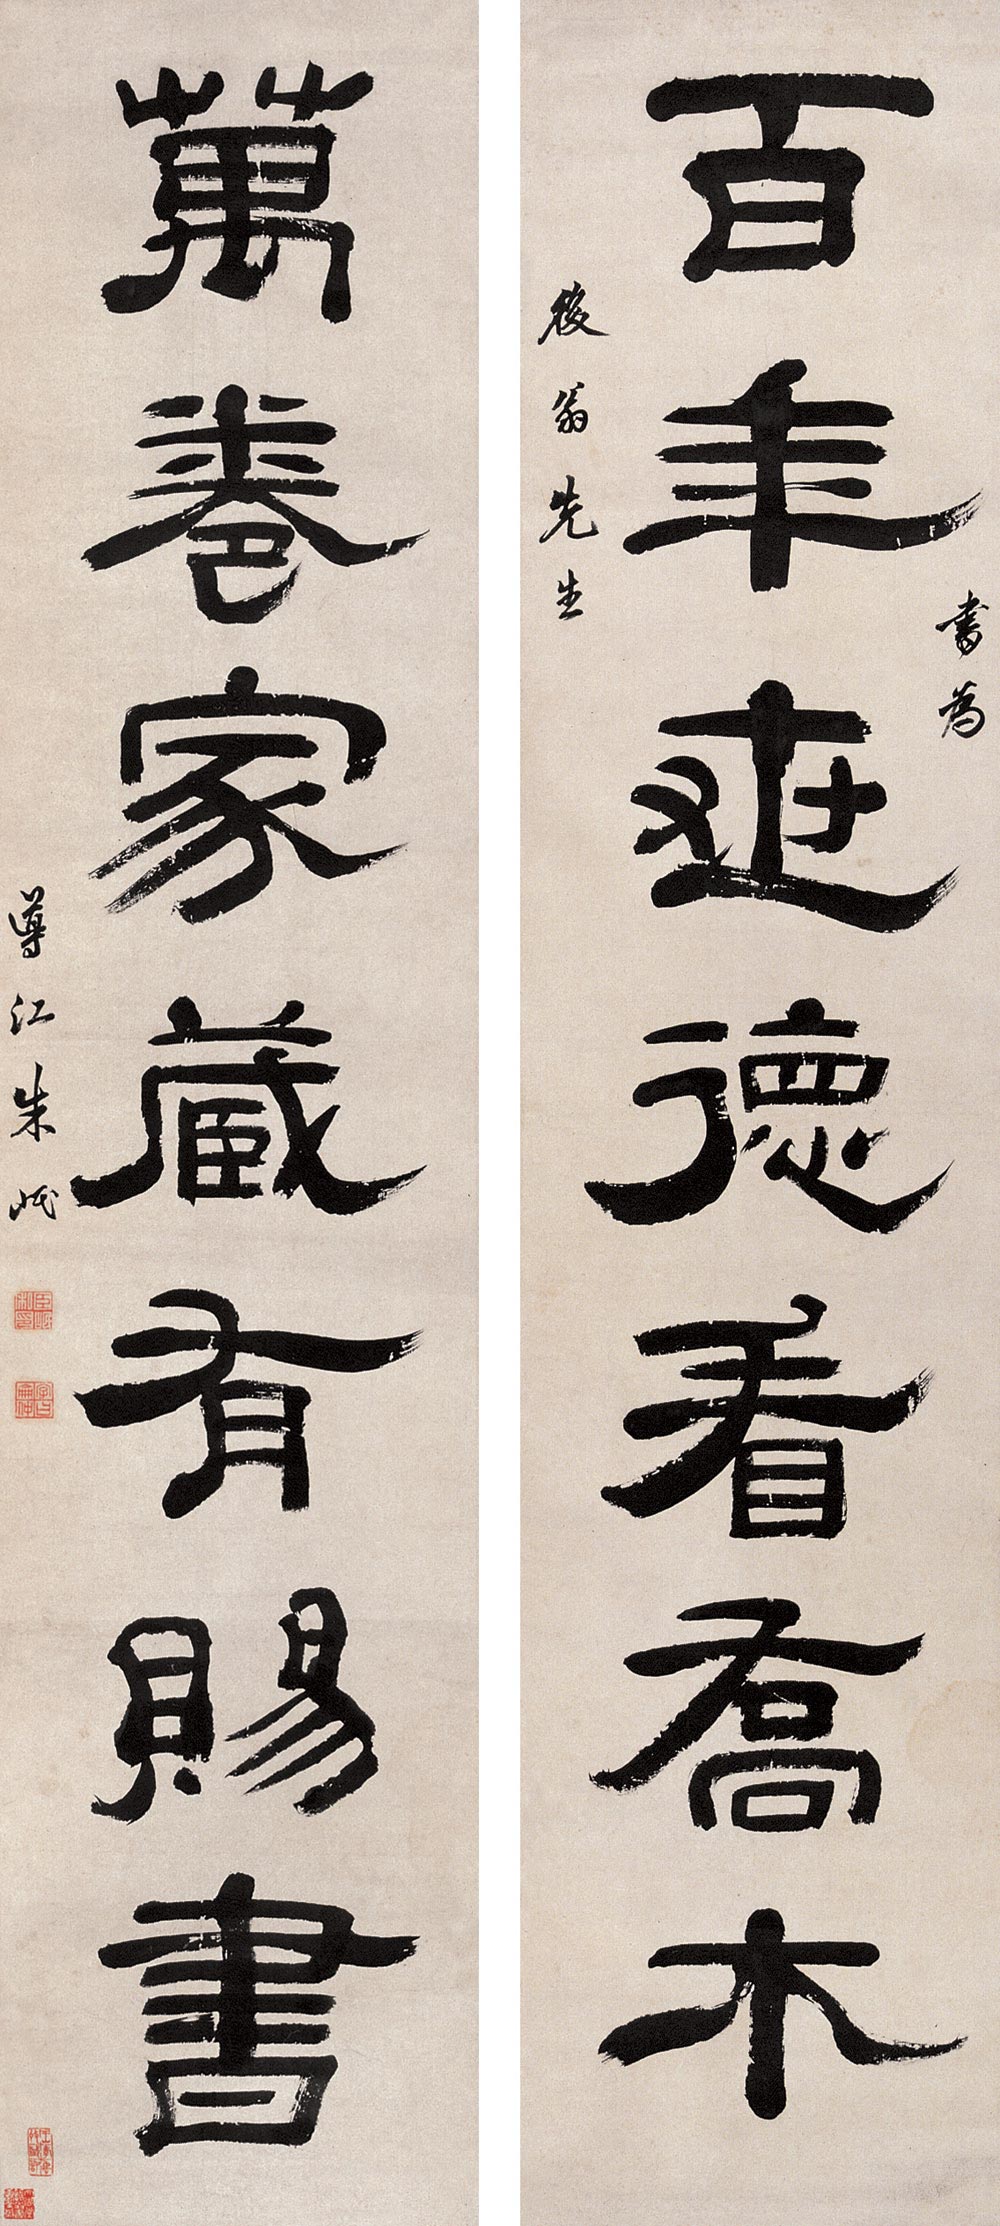 書為
百年世德看喬木
後翁先生
萬卷家藏有賜書
導江朱岷